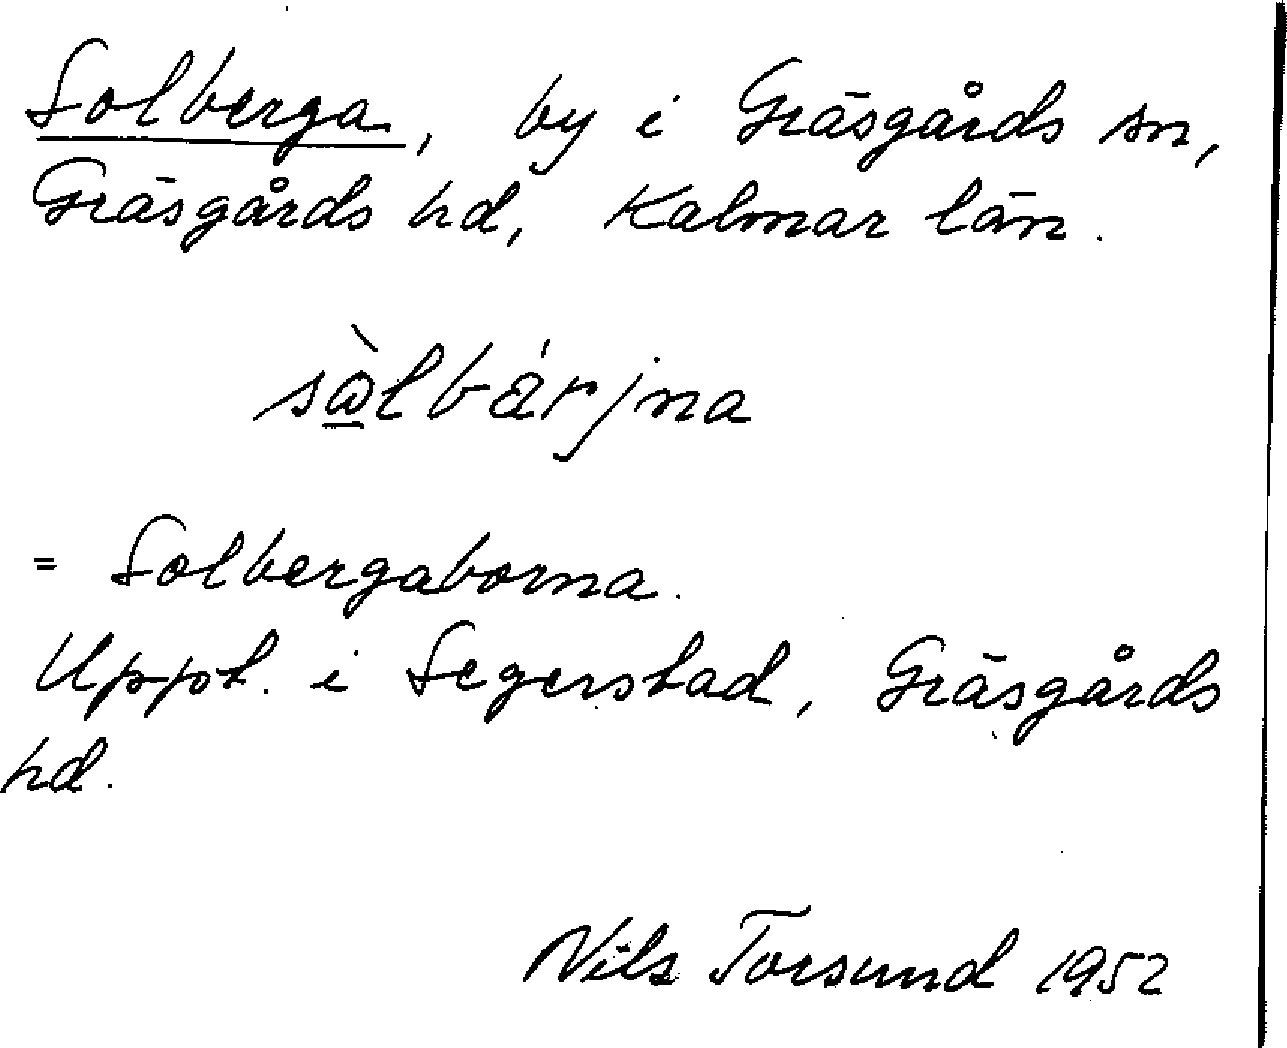 Solberga, by i Gräsgårds sn,
Gräsgårds hd, Kalmar län.
sò̱lbárjna
= Solbergaborna.
Uppt. i Segerstad, Gräsgårds
hd.
Nils Torsund 1952